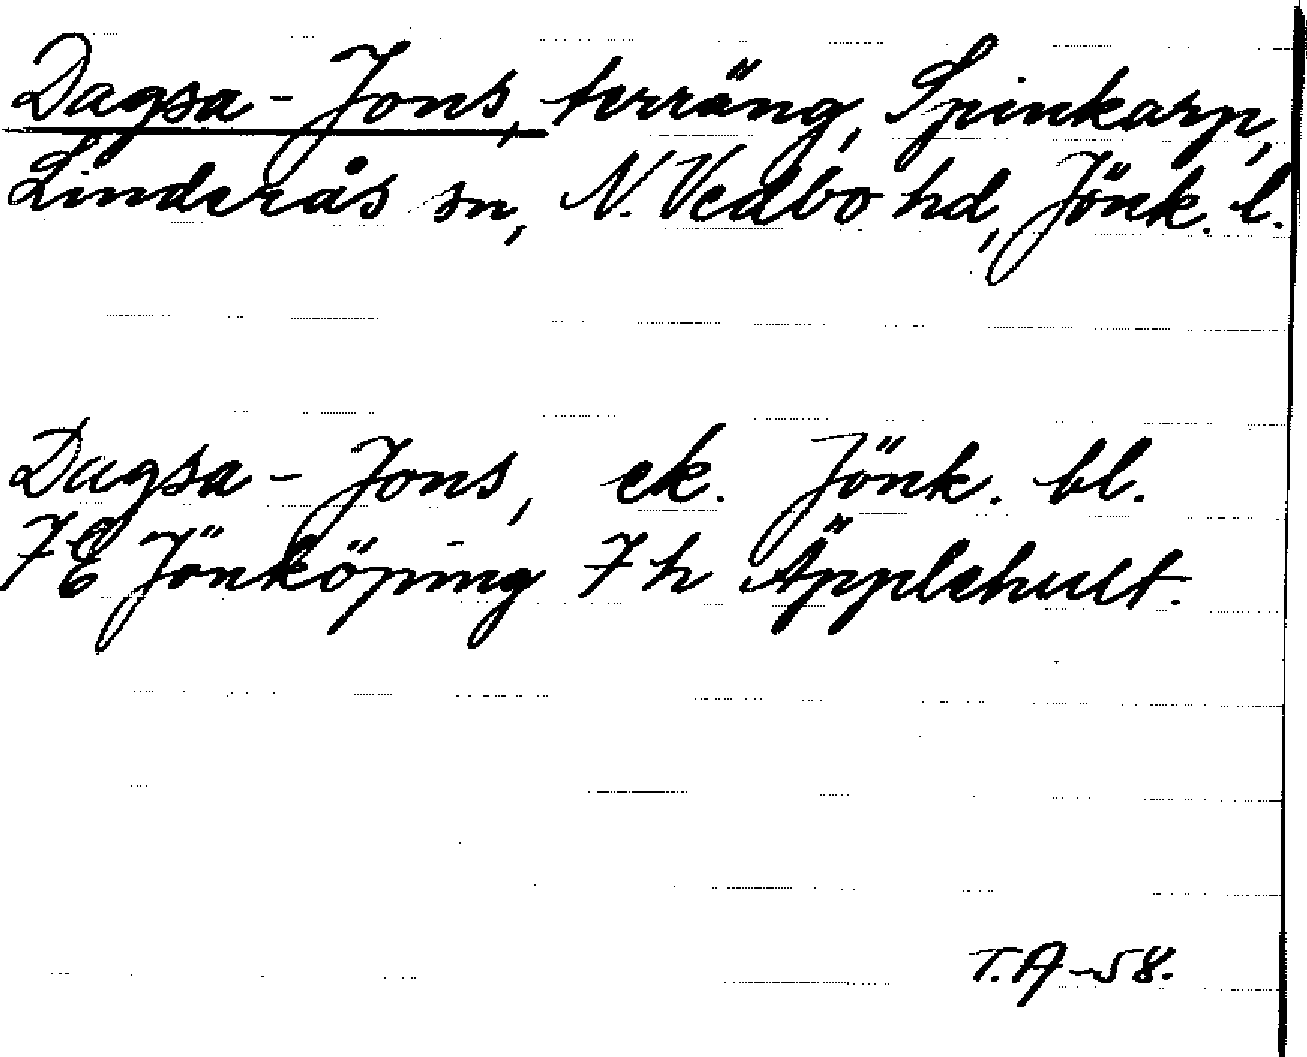 Dagsa-Jons, terräng, Spinkarp,
Linderås sn, N. Vedbo hd, Jönk. l.
Dagsa-Jons, ek. Jönk. bl.
7E Jönköping 7h Äpplehult.
T.A-58.